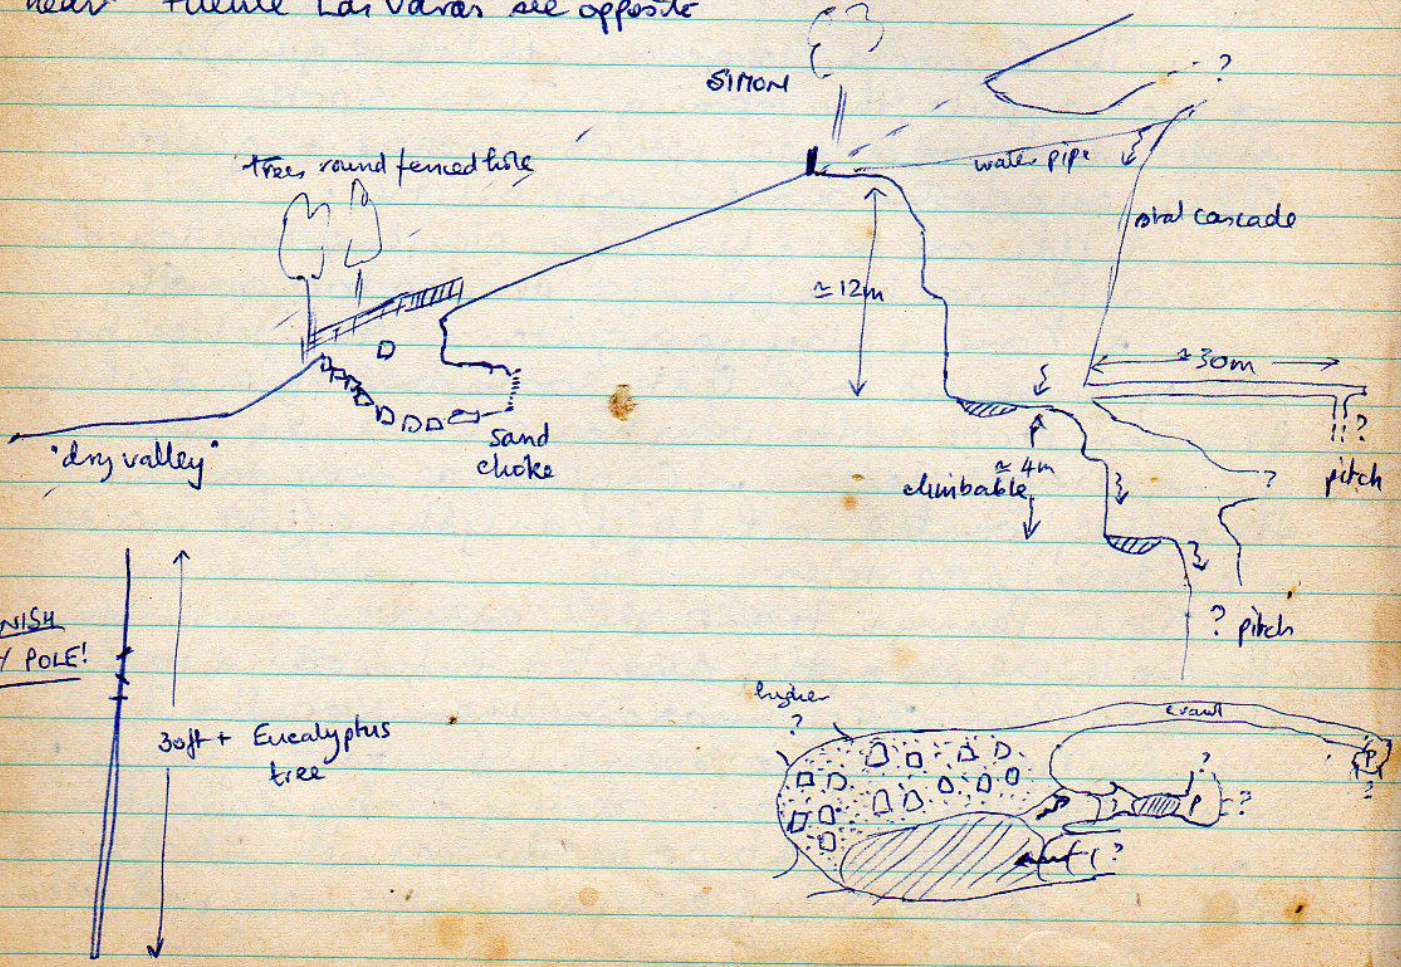 near Fuente Las Varas see opposite
SIMON
?
trees round fenced hole
water pipe
cascade
≃12m
≃30m
"dry valley"
sand
choke
≃ 4m
climbable
?
?
pitch
? pitch
NISH
Y POLE!
30ft + Eucalyptus
tree
higher
?
crawl
P
?
?
P
?
?